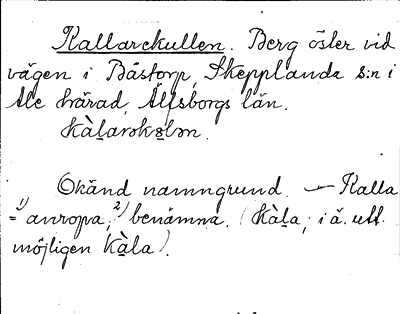 Kallarekullen. Berg öster vid
vägen i Båstorp, Skepplanda s:n i
Ale härad, Älfsborgs län.
kàlarəkələn.
Okänd namngrund. — Kalla
= 1) anropa, 2) benämna. (kàla, i ä. utt.
möjligen kàla).